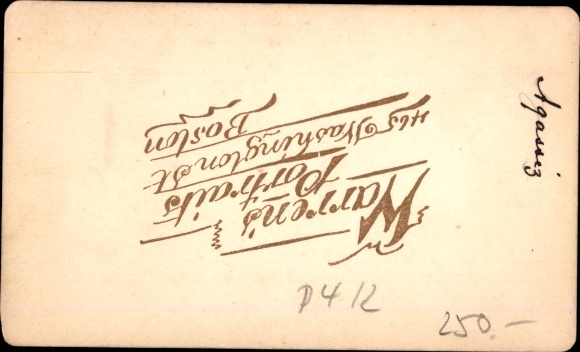 Warren's
Portraits
465 Washington St
Boston
Agassiz
P 4 12
250.—